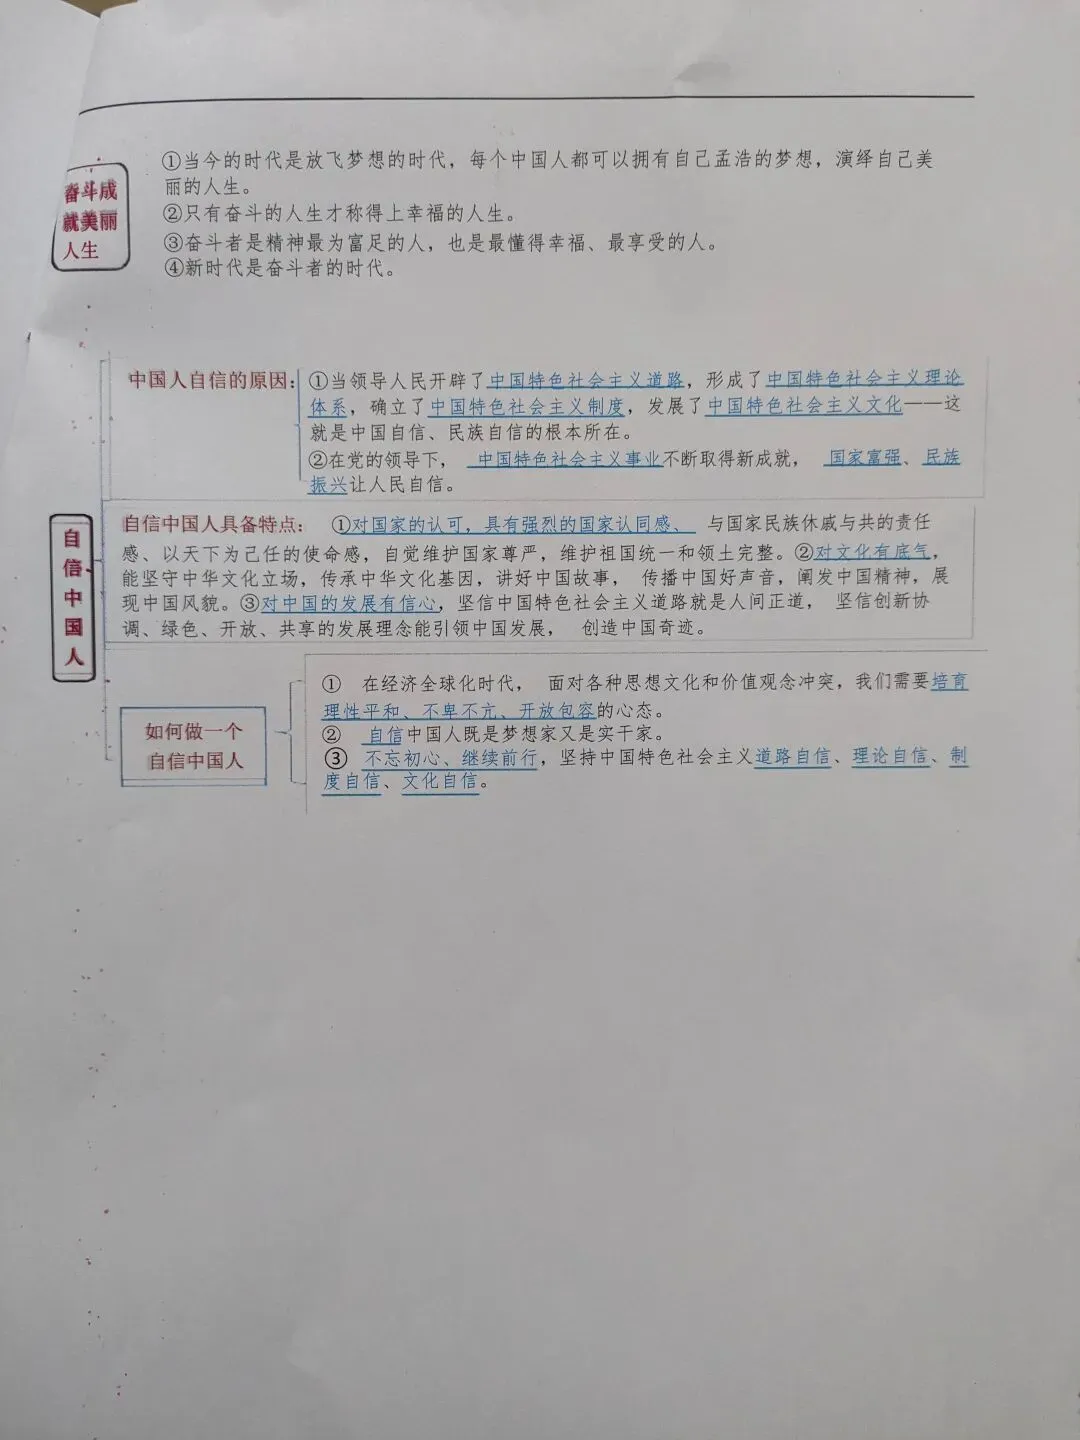 奋斗成
就美丽
人生
①当今的时代是放飞梦想的时代，每个中国人都可以拥有自己孟浩的梦想，演绎自己美
丽的人生。
②只有奋斗的人生才称得上幸福的人生。
③奋斗者是精神最为富足的人，也是最懂得幸福、最享受的人。
④新时代是奋斗者的时代。
自信中国人
中国人自信的原因：
①当领导人民开辟了中国特色社会主义道路，形成了中国特色社会主义理论
体系，确立了中国特色社会主义制度，发展了中国特色社会主义文化——这
就是中国自信、民族自信的根本所在。
②在党的领导下， 中国特色社会主义事业不断取得新成就， 国家富强、民族
振兴让人民自信。
自信中国人具备特点： ①对国家的认可，具有强烈的国家认同感、 与国家民族休戚与共的责任
感、以天下为己任的使命感，自觉维护国家尊严，维护祖国统一和领土完整。②对文化有底气，
能坚守中华文化立场，传承中华文化基因，讲好中国故事， 传播中国好声音，阐发中国精神，展
现中国风貌。③对中国的发展有信心，坚信中国特色社会主义道路就是人间正道， 坚信创新协
调、绿色、开放、共享的发展理念能引领中国发展， 创造中国奇迹。
如何做一个
自信中国人
① 在经济全球化时代， 面对各种思想文化和价值观念冲突，我们需要培育
理性平和、不卑不亢、开放包容的心态。
② 自信中国人既是梦想家又是实干家。
③ 不忘初心、继续前行，坚持中国特色社会主义道路自信、理论自信、制
度自信、文化自信。